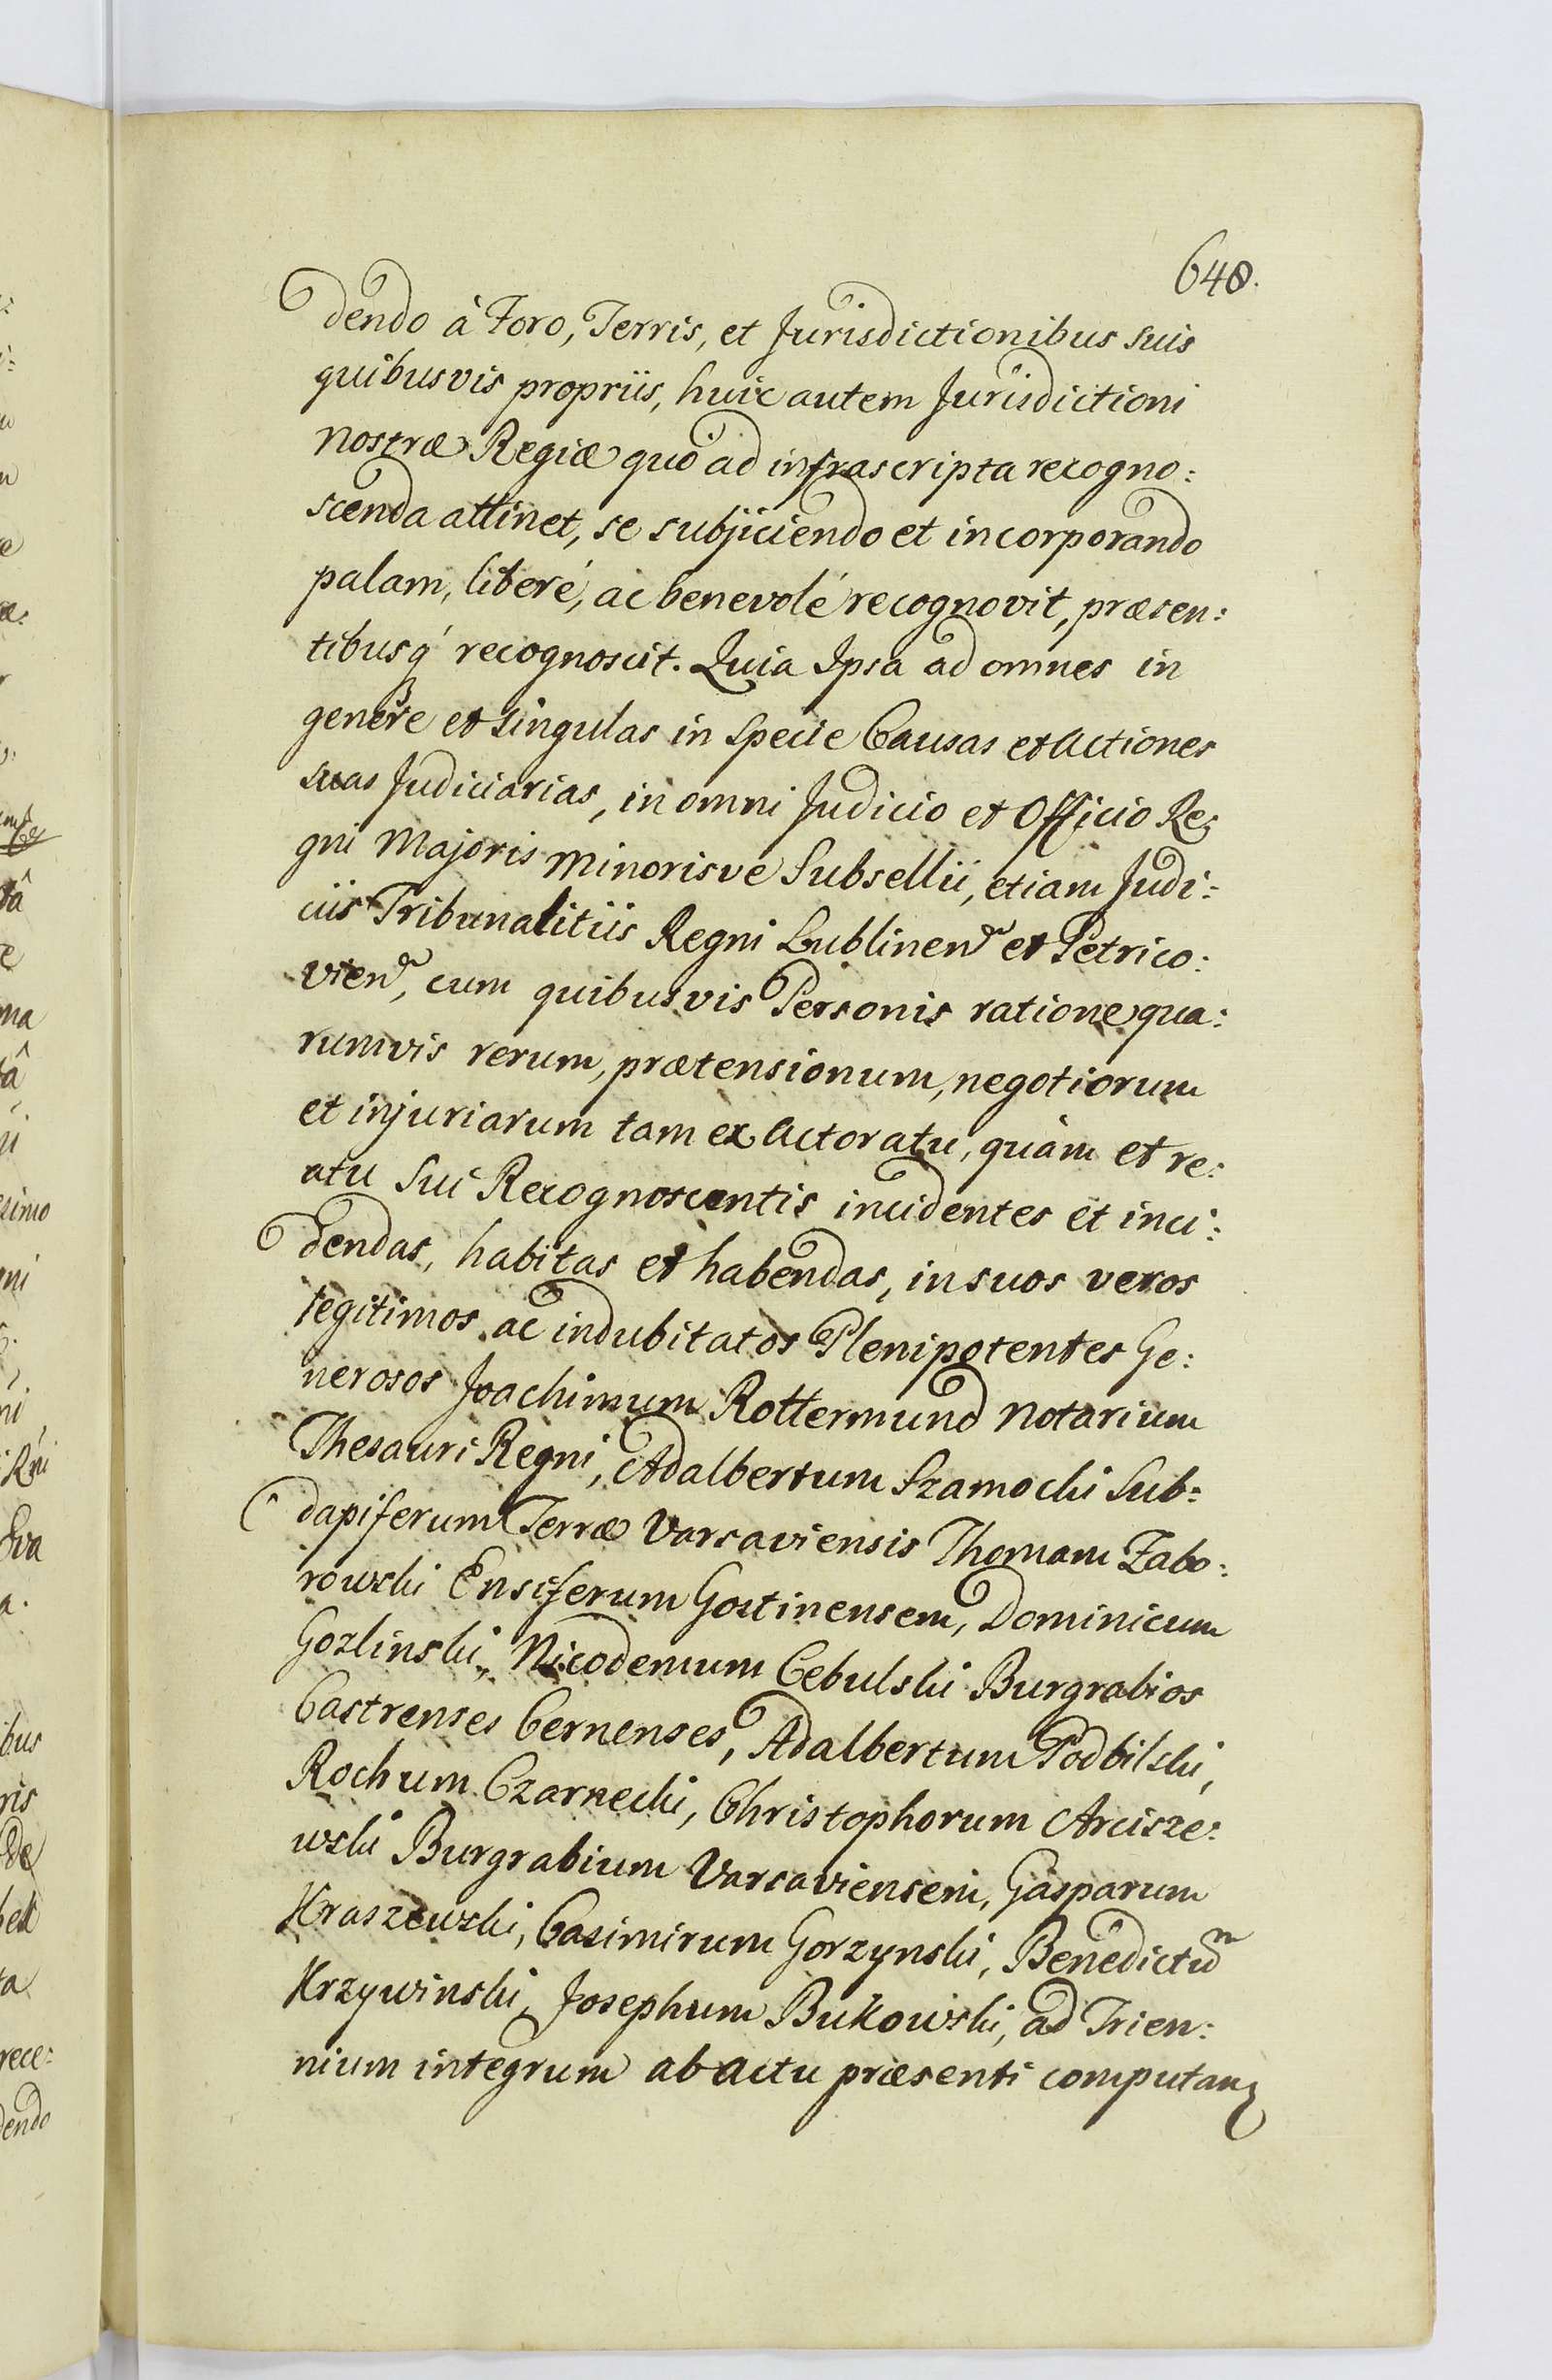 640.
dendo à Foro, Terris, et Jurisdictionibus suis
quibusvis propriis, huic autem Jurisdictioni
nostræ Regiæ quò ad infrascripta recogno:
scenda attinet, se subjiciendo et incorporando
palam, liberé, ac benevolé recognovit, præsen:
tibusq́ recognoscit. Quia Ipsa ad omnes in
genere et singulas in specie Causas et Actiones
suas Judiciarias, in omni Judicio et Officio Re:
gni Majoris Minorisve Subsellii, etiam Judi:
ciis Tribunalitiis Regni Lublinen̄ et Petrico:
vien̄, cum quibusvis Personis ratione qua:
rumvis rerum, prætensionum, negotiorum
et injuriarum tam ex Actoratu, quàm et re:
atu Sui Recognoscentis incidentes et inci:
dendas, habitas et habendas, in suos veros
legitimos ac indubitatos Plenipotentes Ge:
nerosos Joachimum Rottermund Notarium
Thesauri Regni, Adalbertum Szamocki Sub:
dapiferum Terræ Varsaviensis Thomam Zabo:
rowski Ensiferum Gostinensem, Dominicum
Gozlinski, Nicodemum Cebulski Burgrabios
Castrenses Cernenses, Adalbertum Podbilski,
Rochum Czarnecki, Christophorum Arcisze:
wski Burgrabium Varsaviensem, Gasparum
Kraszewski, Casimirum Gorzynski, Benedictum
Krzywinski, Josephum Bukowski, ad Trien:
nium integrum ab actu præsenti computan